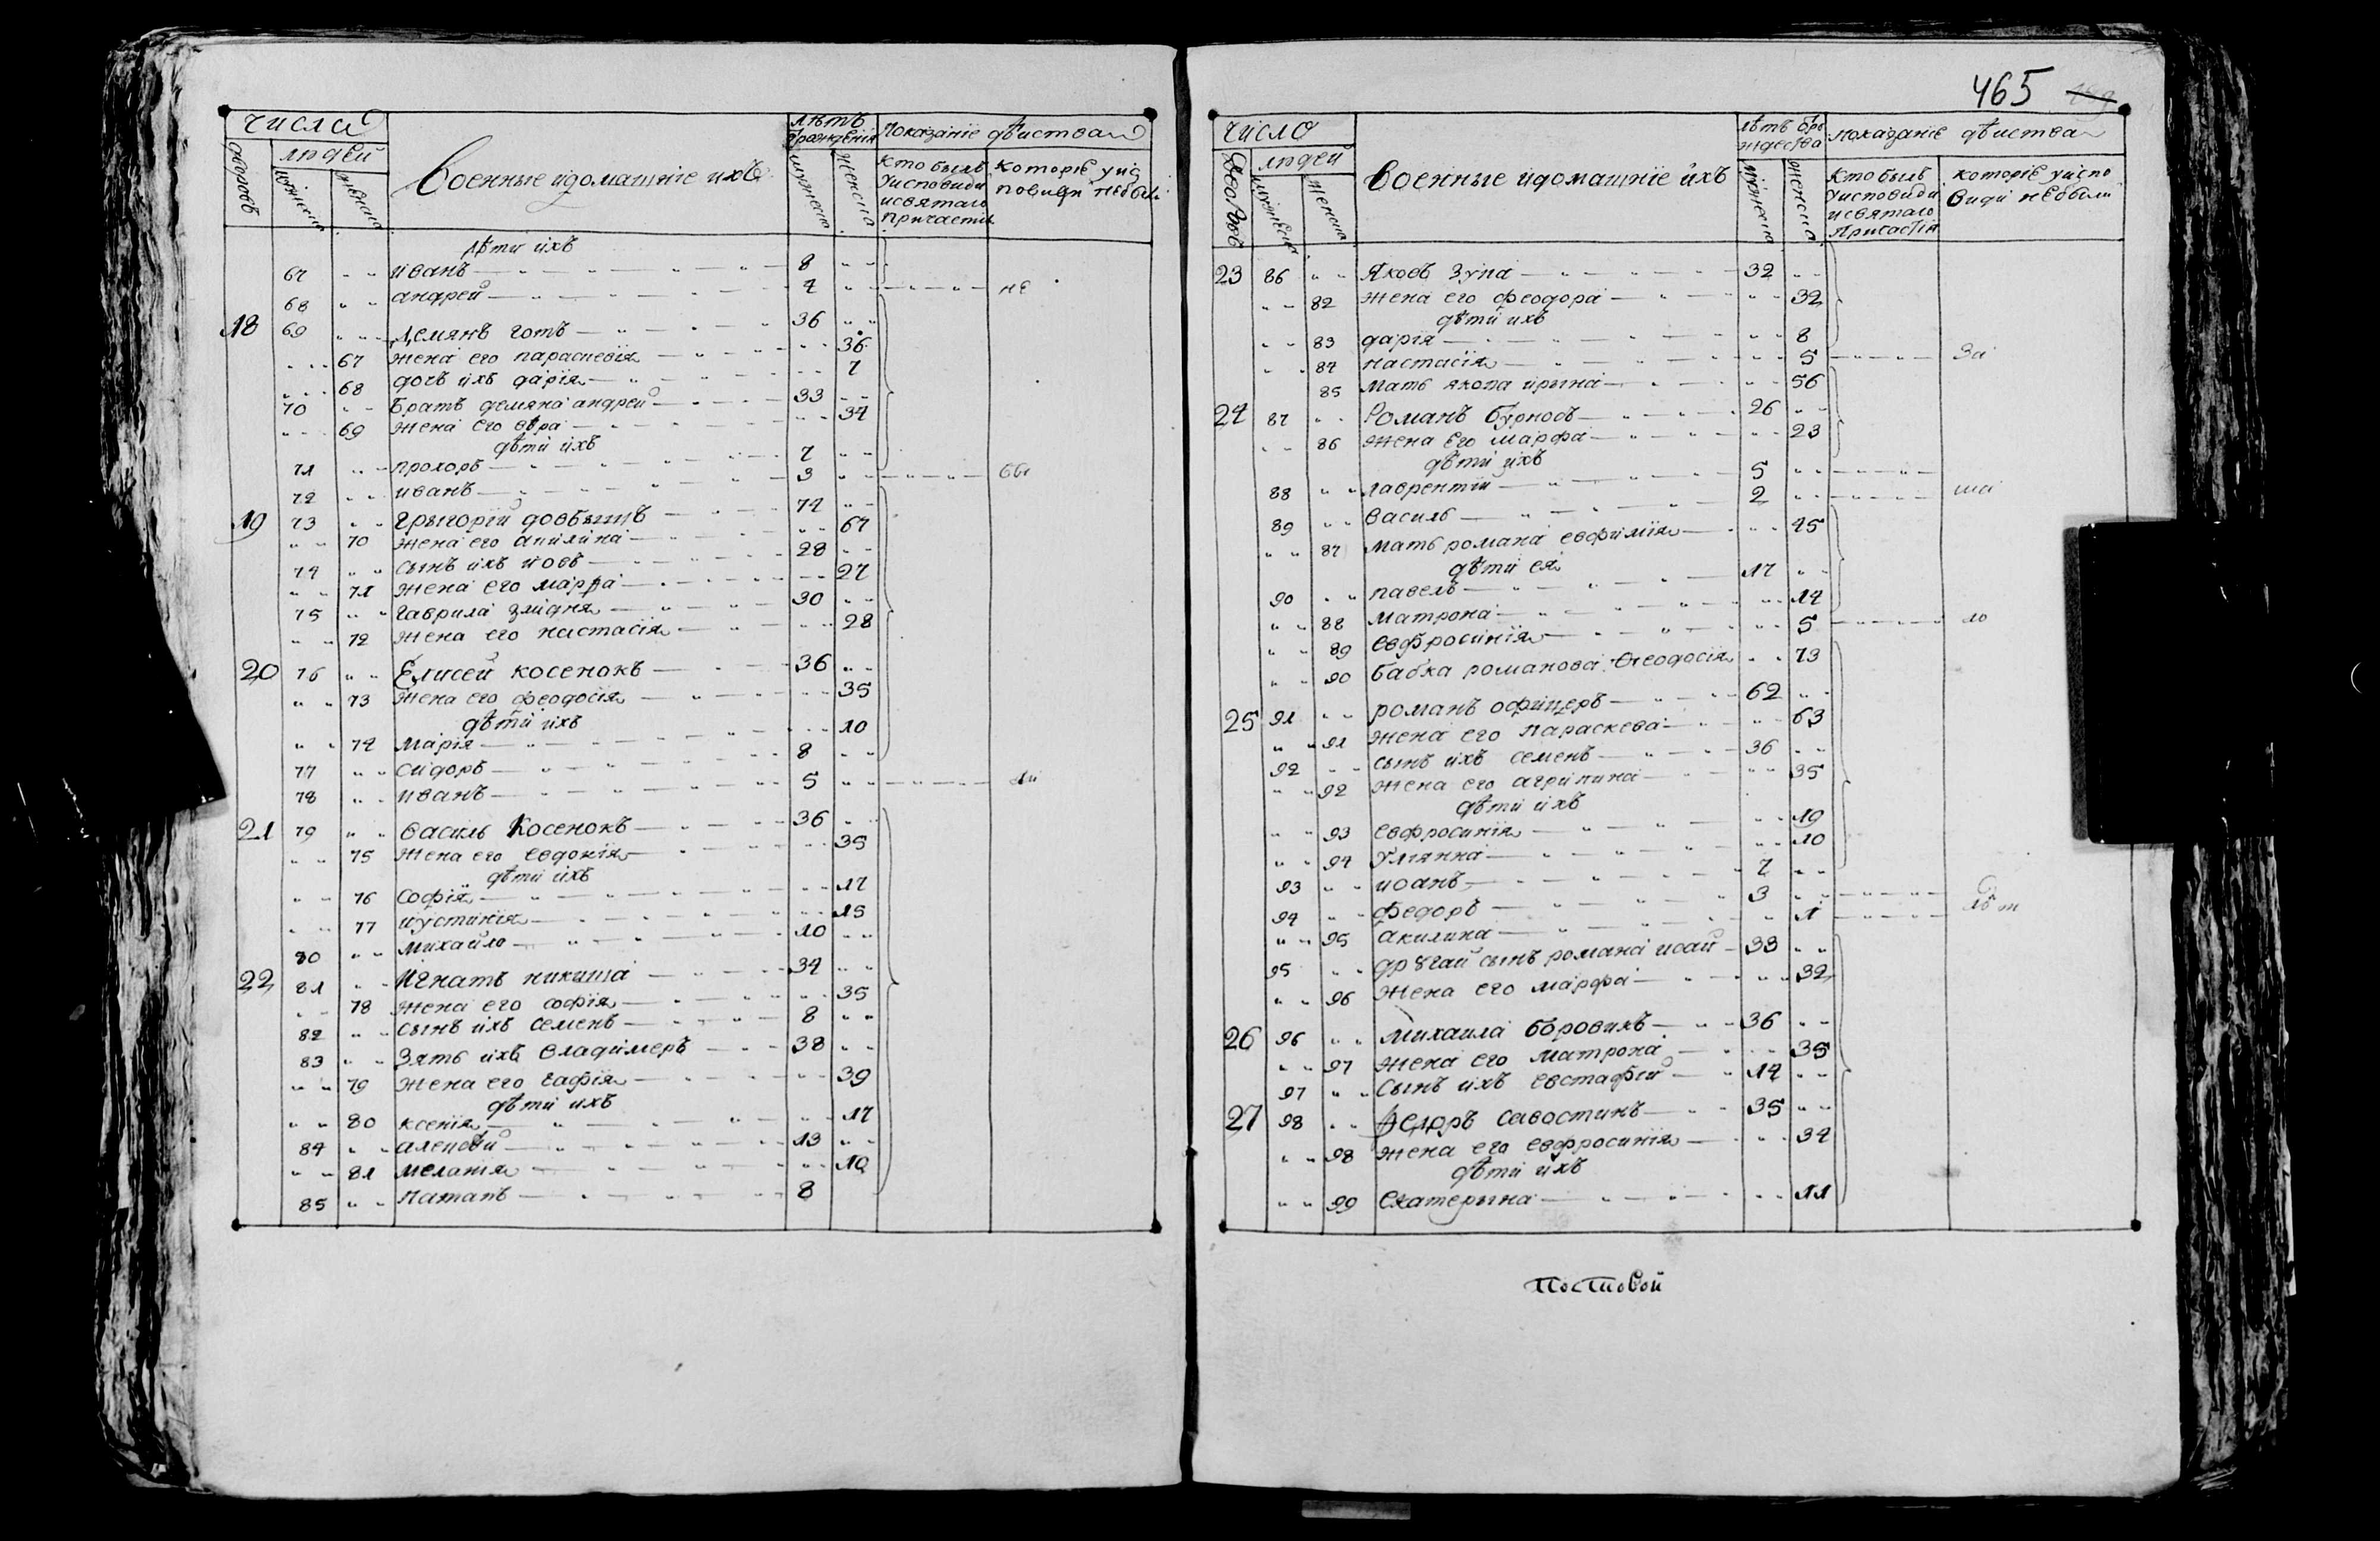 числа
людей
дворовъ
мужеска
женска
Военные идомашніе ихъ
лѣтъ
ѿрожденія
мужеска
женска
показаніе дѣиства
кто былъ
уисповиди
исвятаго
причастія
которіе уис
повиди небыли
дѣти ихъ
67 иванъ 8
68 андрей 4 не
18 69 демянъ готъ 36
67 жена его параскевія 36
68 дочь ихъ дарія 7
70 братъ демяна андрей 33
69 жена его евра 34
дѣти ихъ
71 прохоръ 7
72 иванъ 3
19 73 григорій довбышъ 74
70 жена его акилина 67
74 сынъ ихъ іовъ 28
71 жена его марфа 27
75 гаврила злидня 30
72 жена его настасія 28
20 76 Елисей косенокъ 36
73 жена его феодосія 35
дѣти ихъ
74 марія 10
77 сидоръ 8
78 иванъ 5 ли
21 79 василь косенокъ 36
75 жена его евдокія 35
дѣти ихъ
76 софія 17
77 иустинія 15
80 михайло 10
22 81 игнатъ никиша 34
78 жена его софія 35
82 сынъ ихъ семенъ 8
83 зять ихъ владимеръ 38
79 жена его гафія 39
дѣти ихъ
80 ксенія 17
84 алексѣй 13
81 меланія 10
85 патапъ 8
465
число
людей
дворовъ
мужеска
женска
Военные идомашніе ихъ
лѣтъ ѿро
ждества
мужеска
женска
показаніе дѣиства
кто былъ
уисповиди
исвятаго
причастія
которіе уиспо
види небыли
23 86 Яковъ зупа 32
82 жена его феодора 32
дѣти ихъ
83 дарія 8
84 настасія 5 за
85 мать якова ирына 56
24 87 Романъ бурносъ 26
86 жена его марфа 23
дѣти ихъ
88 лаврентій 5
89 василь 2
87 мать романа евфимія 45
дѣти ея
90 павелъ 17
88 матрона 14
89 евфросинія 5 ло
90 бабка романова феодосія 73
25 91 романъ офицеръ 62
91 жена его параскева 63
92 сынъ ихъ семенъ 36
92 жена его агрипина 35
дѣти ихъ
93 евфросинія 19
94 улянна 10
93 иоанъ 7
94 федоръ 3
95 акилина 1
95 другай сынъ романа исай 33
96 жена его марфа 32
26 96 михаила боровикъ 36
97 жена его матрона 35
97 сынъ ихъ евстафій 14
27 98 Федоръ савостинъ 35
98 жена его евфросинія 34
дѣти ихъ
99 екатерына 11
Постовой